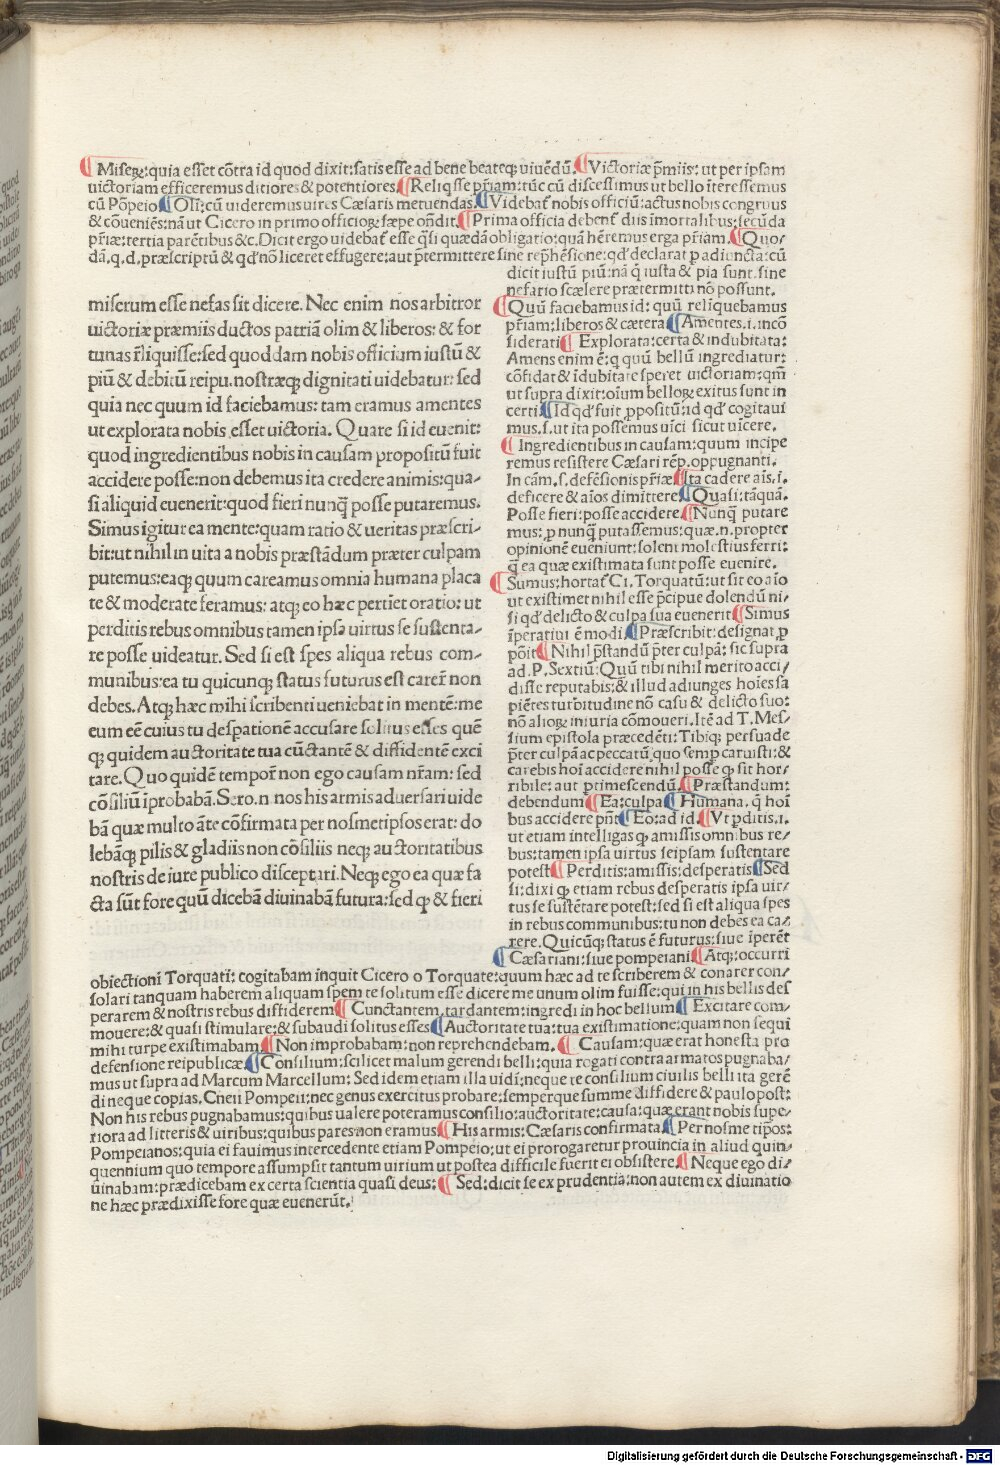 ¶ Miseꝝ: quia esset cōtra id quod dixit: satis esse ad bene beateqꝫ uiuēdū. ¶ Victoriæ p̄miis: ut per ipsam
uictoriam efficeremus ditiores & potentiores ¶ Reliq̄sse pr̄iam: tūc cū discessimus ut bello īteressemus
cū Pōpeio ¶ Olī: cū uideremus uires Cæsaris metuendas. ¶ Videbat̄ nobis officiū: actus nobis congruus
& cōueniēs: nā ut Cicero in primo officioꝝ sæpe on̄dit. ¶ Prima officia debent̄ diis īmortalibus: secūda
pr̄iæ: tertia parētibus &c. Dicit ergo uidebat̄ esse q̄si quædā obligatio: quā hēremus erga pr̄iam. ¶ Quo/
dā. q. d. præscriptū & qđ nō liceret effugere: aut p̄termittere sine rep̄hēsione: qđ declarat p adiuncta: cū
dicit iustū piū: nā q̄ iusta & pia sunt. sine
nefario scælere prætermitti nō possunt.
¶ Quū faciebamus id: quū reliquebamus
pr̄iam: liberos & cætera ¶ Amentes. i. incō
siderati ¶ Explorata: certa & indubitata:
Amens enim ē: q quū bellū ingrediatur:
cōfidat & īdubitate speret uictoriam: qm̄
ut supra dixit: oīum belloꝝ exitus sunt in
certi ¶ Id qđ fuit ppositū: id qđ cogitaui
mus. s. ut ita possemus uīci sicut uīcere.
¶ Ingredientibus in causam: quum incipe
remus resistere Cæsari rēp. oppugnanti.
In cām. s. defēsionis pr̄iæ ¶ Ita cadere aīs. s.
deficere & aīos dimittere ¶ Quasi: tāquā.
Posse fieri: posse accidere ¶ Nunq̄ putare
mus: p nunq̄ putassemus: quæ. n. propter
opinionē eueniunt: solent molestius ferri:
q̄ ea quæ existimata sunt posse euenire.
¶ Sumus: hortat̄ Ci. Torquatū: ut sit eo aīo
ut existimet nihil esse p̄cipue dolendū ni/
si qđ delicto & culpa sua euenerit ¶ Simus
īperatiui ē modi ¶ Præscribit: designat p
pōit ¶ Nihil p̄standū p̄ter culpā: sic supra
ad. P. Sextiū: Quū tibi nihil merito acci/
disse reputabis: & illud adiunges hoīes sa
piētes turbitudine nō casu & delicto suo:
nō alioꝝ iniuria cōmoueri. Itē ad T. Mes/
sium epistola præcedēti: Tibiqꝫ persuade
p̄ter culpā ac peccatū quo semp caruisti: &
carebis hoī accidere nihil posse qꝫ sit hor/
ribile: aut ptimescendū. ¶ Præstandum:
debendum ¶ Ea: culpa ¶ Humana. q̄ hoī
bus accidere pn̄t ¶ Eo: ad id. ¶ Vt pditis. i.
ut etiam intelligas qꝫ amissis omnibus re/
bus: tamen ipsa uirtus seipsam sustentare
potest ¶ Perditis: amissis: desperatis ¶ Sed
si: dixi qꝫ etiam rebus desperatis ipsa uir/
tus se sustētare potest: sed si est aliqua spes
in rebus communibus: tu non debes ea ca/
rere. Quicūqꝫ status ē futurus: siue īperēt
¶ Cæsariani: siue pompeiani ¶ Atqꝫ: occurri
miserum esse nefas sit dicere. Nec enim nos arbitror
uictoriæ præmiis ductos patriā olim & liberos: & for
tunas r̄liquisse: sed quoddam nobis officium iustū &
piū & debitū reipu. nostræqꝫ dignitati uidebatur: sed
quia nec quum id faciebamus: tam eramus amentes
ut explorata nobis esset uictoria. Quare si id euenit:
quod ingredientibus nobis in causam propositū fuit
accidere posse: non debemus ita credere animis: qua/
si aliquid euenerit: quod fieri nunq̄ posse putaremus.
Simus igitur ea mente: quam ratio & ueritas præscri/
bit: ut nihil in uita a nobis præstādum præter culpam
putemus: eaqꝫ quum careamus omnia humana placa
te & moderate feramus: atqꝫ eo hæc pertiet oratio: ut
perditis rebus omnibus tamen ipsa uirtus se sustenta/
re posse uideatur. Sed si est spes aliqua rebus com/
munibus: ea tu quicunqꝫ status futurus est carer̄ non
debes. Atqꝫ hæc mihi scribenti ueniebat in mentē: me
eum eē cuius tu despationē accusare solitus esses quē
qꝫ quidem auctoritate tua cūctantē & diffidentē exci
tare. Quo quidē tempor̄ non ego causam nr̄am: sed
cōsiliū īprobabā. Sero. n nos his armis aduersari uide
bā quæ multo āte cōfirmata per nosmetipsos erat: do
lebāqꝫ pilis & gladiis non cōsiliis neqꝫ auctoritatibus
nostris de iure publico disceptari. Neqꝫ ego ea quæ fa
cta sūt fore quū dicebā diuinabā futura: sed qꝫ & fieri
obiectioni Torquati: cogitabam inquit Cicero o Torquate: quum hæc ad te scriberem & conarer con/
solari tanquam haberem aliquam spem te solitum esse dicere me unum olim fuisse: qui in his bellis des
perarem & nostris rebus diffiderem ¶ Cunctantem, tardantem: ingredi in hoc bellum ¶ Excitare com/
mouere: & quasi stimulare: & subaudi solitus esses ¶ Auctoritate tua: tua existimatione: quam non sequi
mihi turpe existimabam ¶ Non improbabam: non reprehendebam. ¶ Causam: quæ erat honesta pro
defensione reipublicæ ¶ Consilium: scilicet malum gerendi belli: quia rogati contra armatos pugnaba/
mus ut supra ad Marcum Marcellum: Sed idem etiam illa uidi: neque te consilium ciuilis belli ita gerē
di neque copias. Cneii Pompeii: nec genus exercitus probare: semperque summe diffidere & paulo post:
Non his rebus pugnabamus: quibus ualere poteramus consilio: auctoritate: causa: quæ erant nobis supe/
riora ad litteris & uiribus: quibus pares non eramus ¶ His armis: Cæsaris confirmata ¶ Per nosme tipos:
Pompeianos: quia ei fauimus intercedente etiam Pompeio: ut ei prorogaretur prouincia in aliud quin/
quennium quo tempore assumpsit tantum uirium ut postea difficile fuerit ei obsistere ¶ Neque ego di/
uinabam: prædicebam ex certa scientia quasi deus: ¶ Sed: dicit se ex prudentia: non autem ex diuinatio
ne hæc prædixisse fore quæ euenerūt.
Digitalisierung gefördert durch die Deutsche Forschungsgemeinschaft - DFG